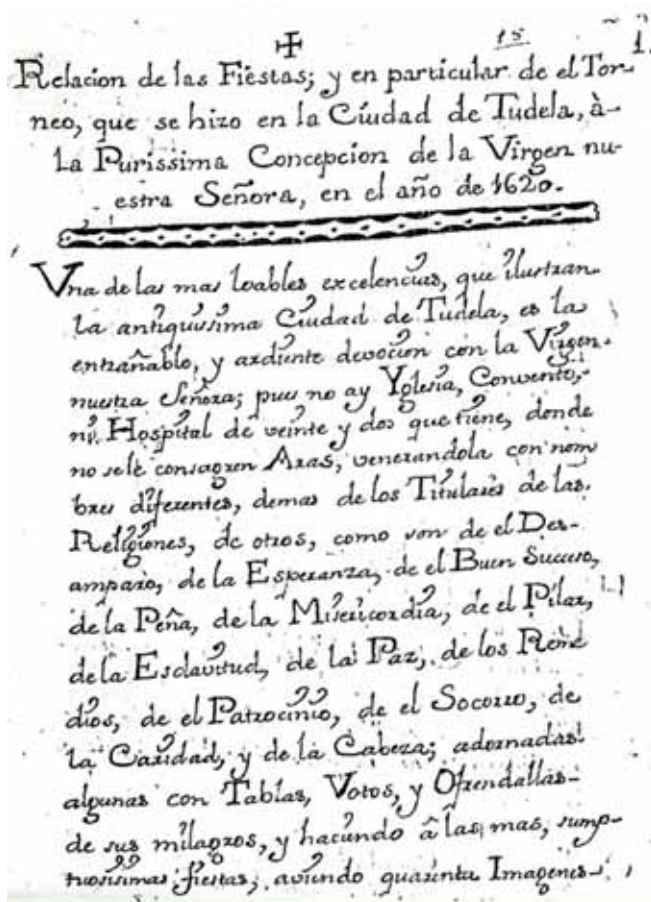 ✠
15 1.
Relacion de las Fiestas; y en particular de el Tor-
neo, que se hizo en la Ciudad de Tudela, à-
la Purissima Concepcion de la Virgen nu-
estra Señora, en el año de 1620.
Vna de las mas loables excelencias, que ilustran
la antiquissima Ciudad de Tudela, es la
entrañable, y ardiente devocion con la Virgen
nuestra Señora; pues no ay Yglesia, Convento,
ni Hospital de veinte y dos que tiene, donde
no se le consagren Aras, venerandola con nom
bres diferentes, demas de los Titulares de las
Religiones, de otros, como son de el Des-
amparo, de la Esperanza, de el Buen Sucesso,
de la Peña, de la Misericordia, de el Pilar,
de la Esclavitud, de la Paz, de los Reme
dios, de el Patrocinio, de el Socorro, de
la Caridad, y de la Cabeza; adornadas
algunas con Tablas, Votos, y Ofrendallas-
de sus milagros, y haciendo â las mas, sump-
tuosissimas fiestas; aviendo quarenta Imagenes